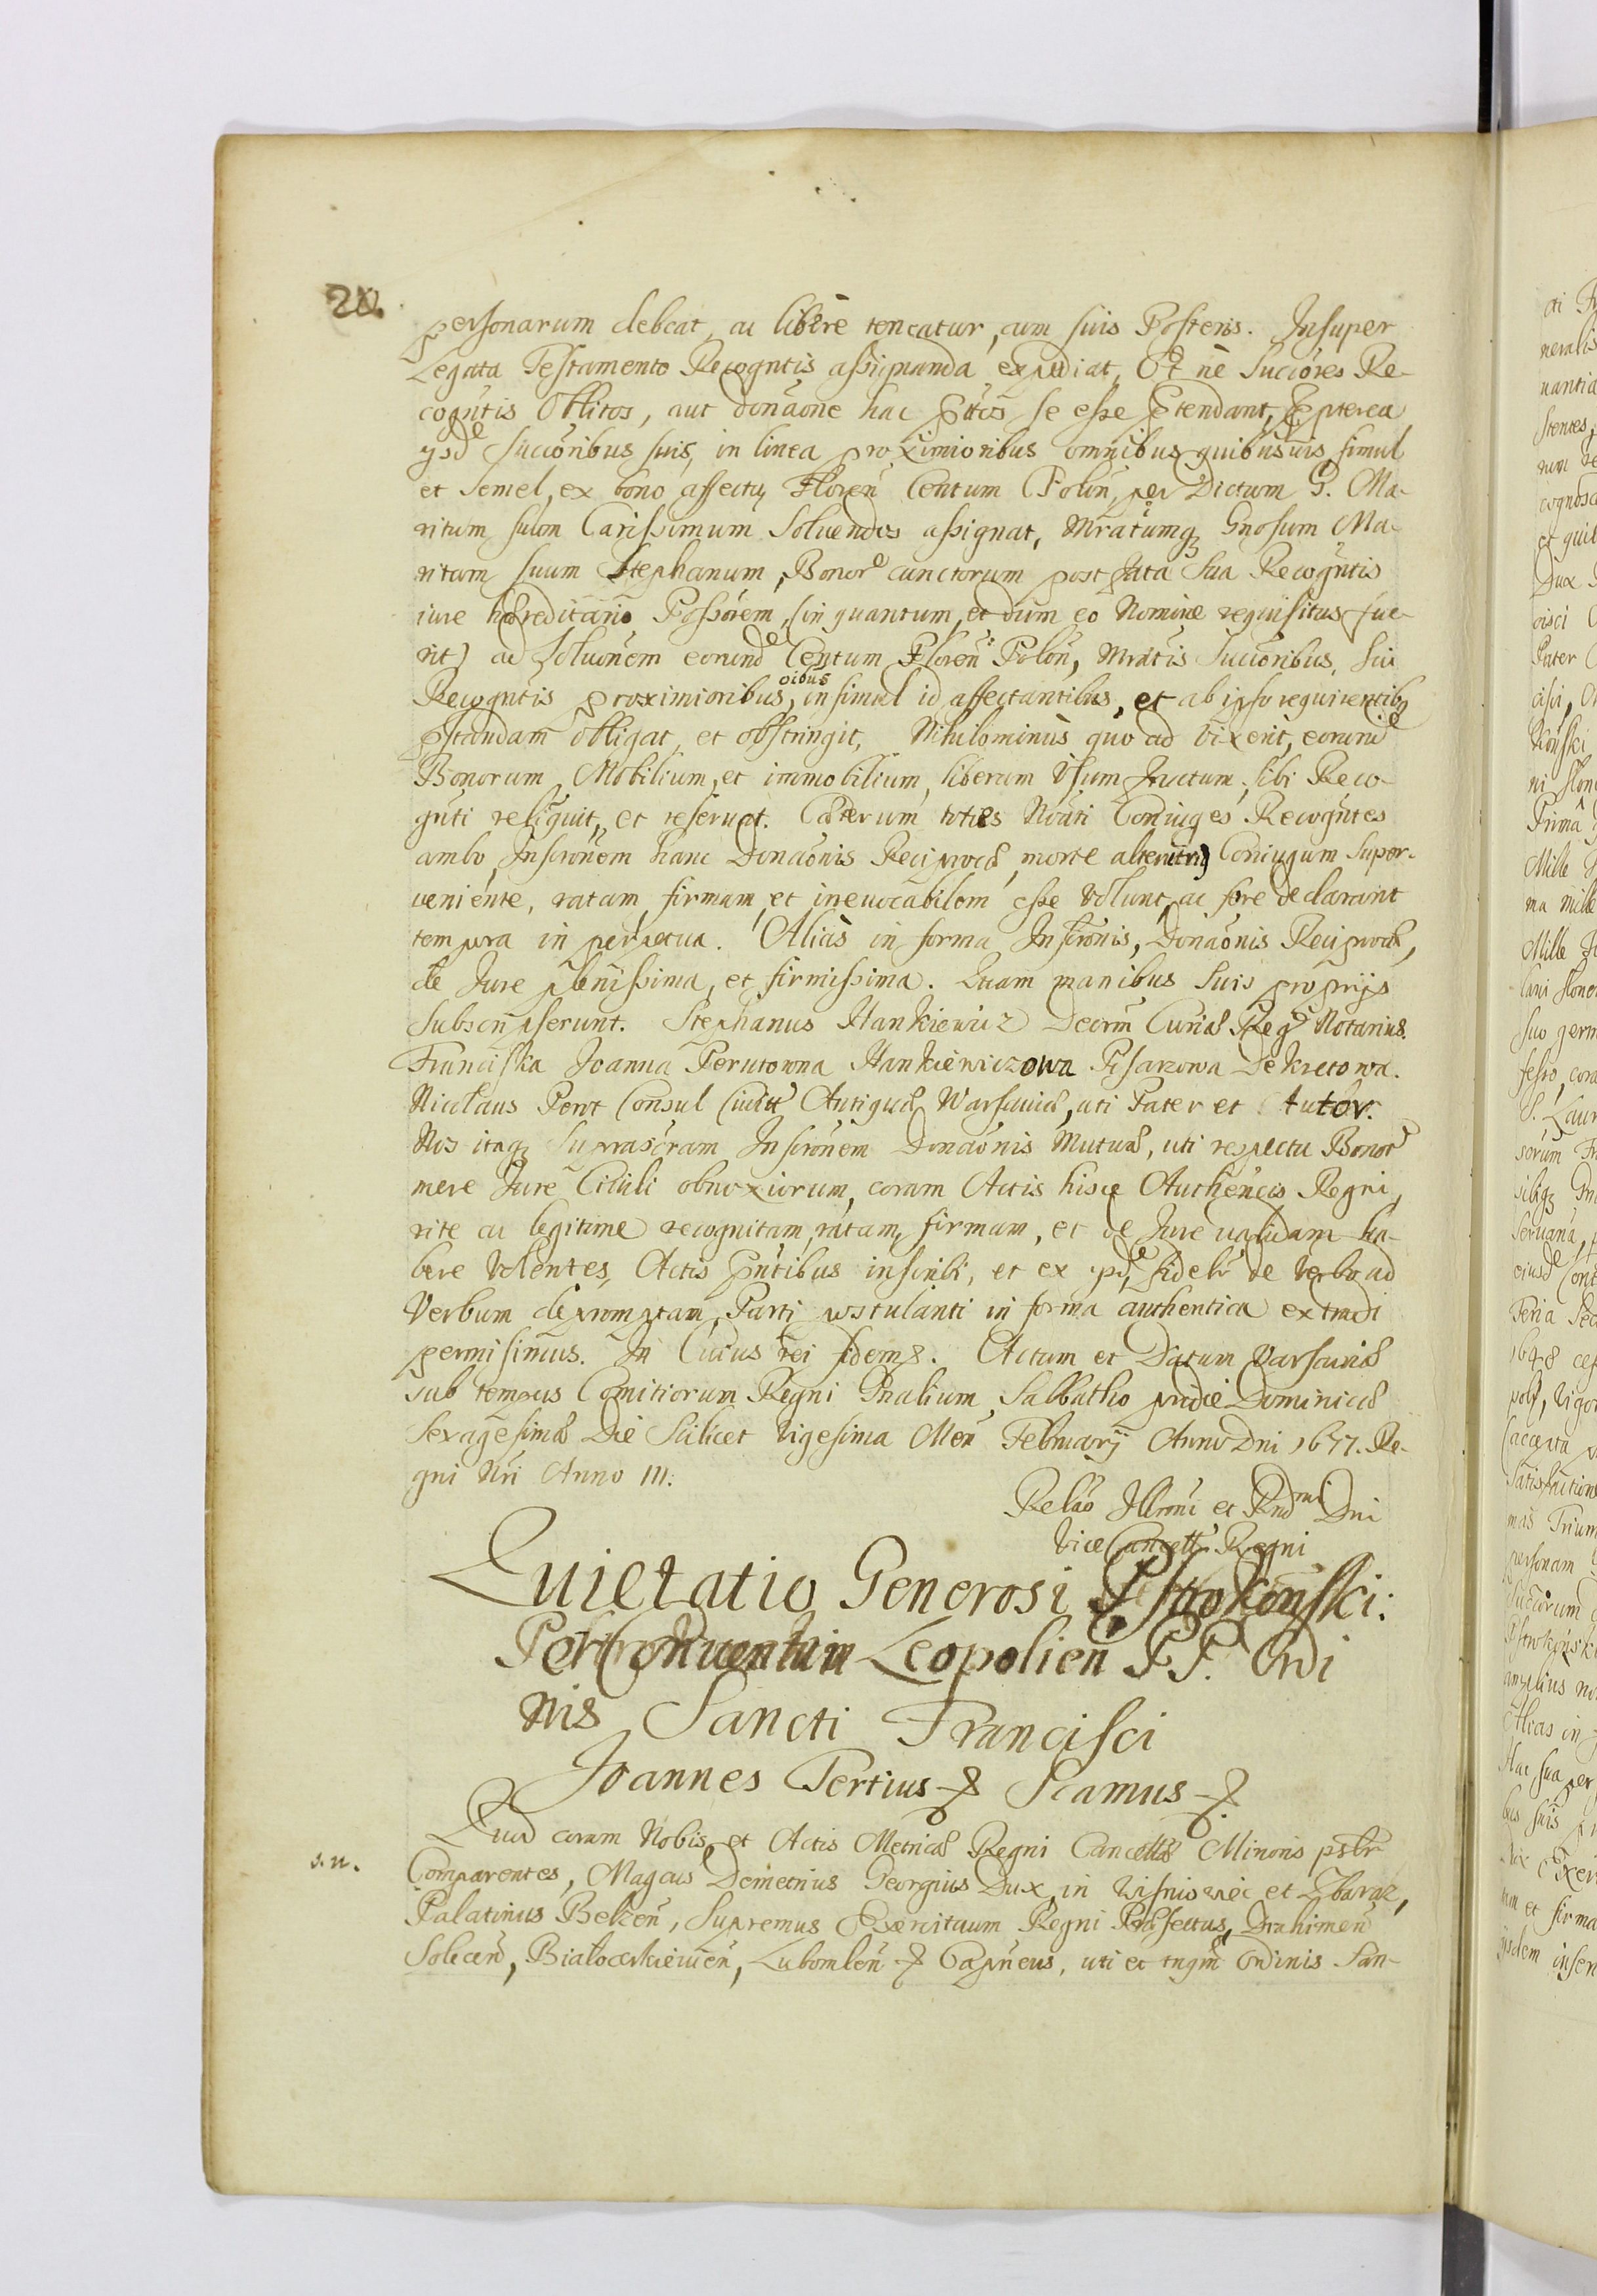 20.
personarum debeat, ac liberè teneatur, cum suis Posteris. Insuper
Legata Testamento Recogntis assignanda expediat, Et nè Succōres Re-
cogntis Oblitos, aut donāone hac se esse ptendant, Eapterea
ysde Succōribus suis, in linea proximioribus omnibus quibusuis simul
et semel, ex bono affectu, Floreñ Centum Poloñ, per Dictum G. Ma-
ritum suum Carissimum Soluendos assignat, Mratumq Gnosum Ma-
ritum suum Stephanum, Bonor cunctorum post fata Sua Recogntis
iure hæreditario Possōrem, (in quantum, et dum eo Nomine requisitus fue-
rit) ad Soluōnem eorunde Centum Floreñ Poloñ, Mratis Succōribus Sui
Recogntis proximioribus, oibus insimul id affectantibus, et ab ipso requirentibq
pstandam obligat, et obstringit, Nihilominùs quo ad vixerit, eorund
Bonorum, Mobilium, et immobilium, liberum Vsum fructum, sibi Reco-
gnti reliquit, et reseruat. Cæterum toties Noāti Coniuges Recogntes
ambo, Inscrōnem hanc Donāonis Reciprocæ, morte alterutrius Coniugum Super-
ueniente, ratam, firmam, et ineuocabilem esse volunt, ac fore declarārunt
tempora in perpetua. Aliàs in forma Inscrōnis, Donāonis Reciprocæ,
de Jure plenissima, et firmissima. Quam manibus Suis proprijs
Subscripserunt. Stephanus Hankiewicz Decrm Curiæ Regæ Notarius.
Franciska Joanna Perutowna Hankiewiczowa Pisarzowa Dekretowa.
Nicolaus Perot Consul Ciuitt Antiquæ Warsauiæ, uti Pater et Tutor.
Nos itaq Suprascrām Inscrōnem Donāonis Mutuæ, uti respectu Bonor
mere Jure Ciuili obnoxiorum, coram Actis hisce Authēncis Regni,
rite ac legitime recognitam, ratam, firmam, et de Jure validam ha-
bere volentes, Actis pntibus inscribi, et ex ijsde fidelr de verbo ad
Verbum depromptam, Parti postulanti in forma authentica extradi
permisimus. In Cuius rei fidem &. Actum et Datum Varsauiæ
sub tempus Comitiorum Regni Gnalium, Sabbatho pridie Dominicæ
Sexagesimæ Die Scilicet Vigesima Meñ Februarij Anno Dni 1677. Re-
gni Nri Anno III.
Relāo Illrmi et Rndmi Dni
Vice Cancell Regni
Quietatio Generosi Pstrokonski:
Per Conuentum Leopolieñ P.P. Ordi
nis Sancti Francisci
Joannes Tertius & Scamus &.
Quod coram Nobis, et Actis Metricæ Regni Cancellæ Minoris psltr
s.n.
Comparentes, Magcus Demetrius Georgius Dux in Wisniowiec et Zbaraz,
Palatinus Belzeñ, Supremus Exercituum Regni Præfectus, Drahimeñ
Soleceñ, Białocerkiewieñ, Lubomleñ & Capneus, uti et Ordinis San-